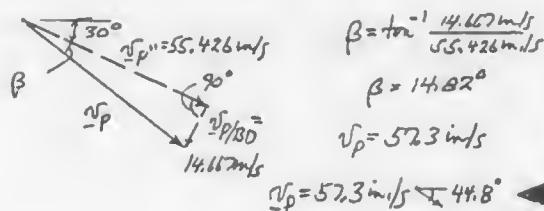 30°
v_p'' = 55.426 in/s
β
90°
v_p
v_p/BD =
14.667 in/s
β = tan⁻¹ 14.667 in/s / 55.426 in/s
β = 14.82°
v_p = 57.3 in/s
v_p = 57.3 in./s 44.8°